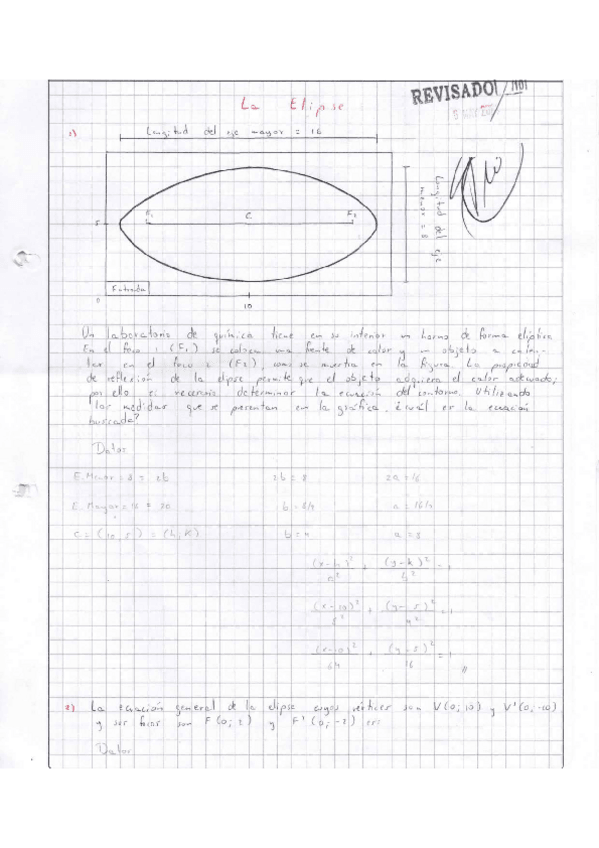 La Elipse
REVISADO
1)
Longitud del eje mayor = 16
Longitud del eje
menor = 8
F1
C
F2
5
Entrada
0
10
Un laboratorio de química tiene en su interior un horno de forma elíptica
En el foco 1 (F1) se coloca una fuente de calor y un objeto a calen-
tar en el foco 2 (F2), como se muestra en la figura. La propiedad
de reflexión de la elipse permite que el objeto adquiera el calor adecuado,
por ello es necesario determinar la ecuación del contorno. Utilizando
las medidas que se presentan en la gráfica, ¿cuál es la ecuación
buscada?
Datos
E. Menor = 8 = 2b 2b = 8 2a = 16
E. Mayor = 16 = 2a b = 8/2 a = 16/2
C = (10, 5) = (h, k) b = 4 a = 8
(x-h)²/a² + (y-k)²/b² = 1
(x-10)²/8² + (y-5)²/4² = 1
(x-10)²/64 + (y-5)²/16 = 1 //
2) La ecuación general de la elipse cuyos vértices son V(0; 10) y V'(0, -10)
y sus focos son F(0; 2) y F'(0, -2) es:
Datos